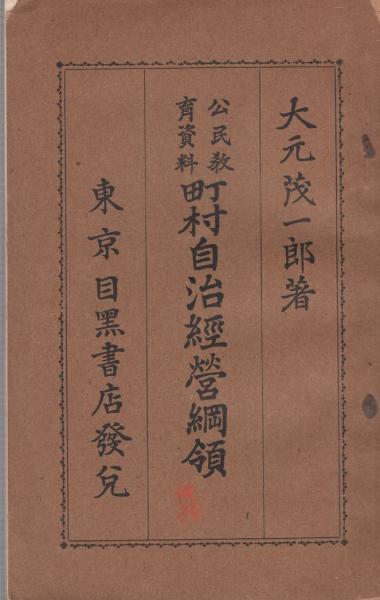 大元茂一郎著
公民教
育資料
町村自治經營綱領
東京目黑書店發兌